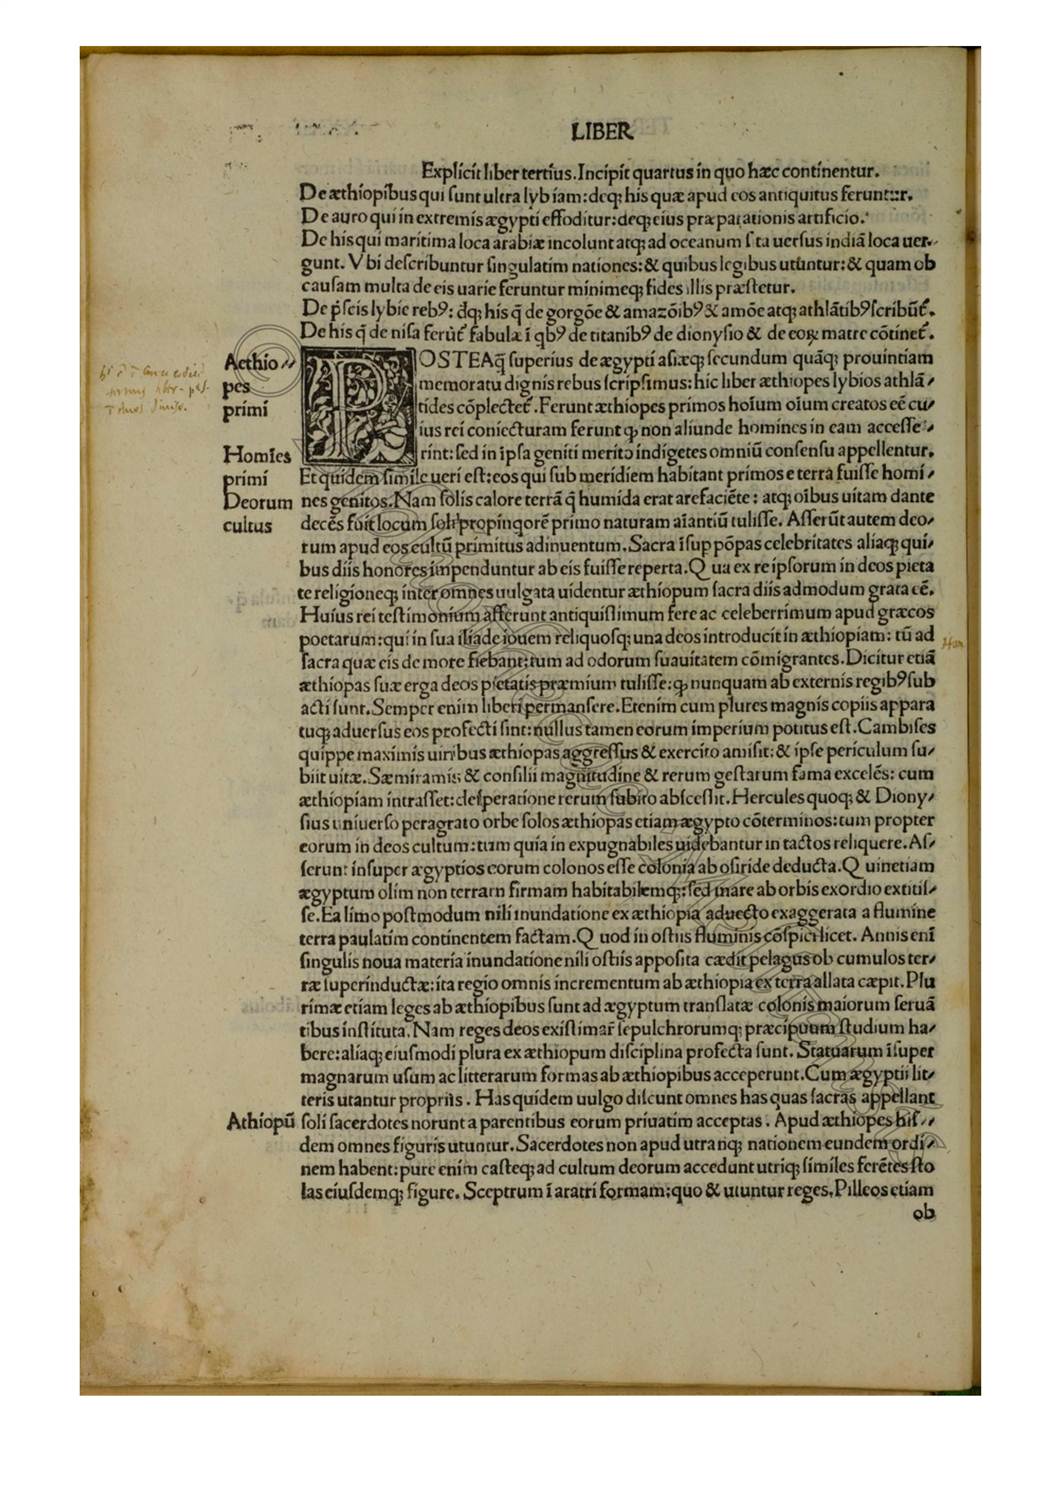 LIBER
Explicit liber tertius. Incipit quartus in quo hæc continentur.
De æthiopibus qui sunt ultra lybiam: deq; his quæ apud eos antiquitus feruntur.
De auro qui in extremis ægypti effoditur: deq; eius præparationis artificio.
De his qui maritima loca arabiæ incolunt atq; ad oceanum usq; uersus indiā loca uer-
gunt. Vbi describuntur singulatim nationes: & quibus legibus utūntur: & quam ob
causam multa de eis uarie feruntur minimeq; fides illis præstetur.
De p̄scis lybie rebꝰ: dq; his q̄ de gorgōe & amazōibꝰ & amōe atq; athlātibꝰ scribūt̄.
De his q̄ de nisa ferūt̄ fabulæ ī qbꝰ de titanibꝰ de dionysio & de eoꝝ matre cōtinet̄.
Aethio-
pes
primi
Homīes
primi
Deorum
cultus
POSTEAq̄ superius de ægypti asiæq; secundum quāq; prouintiam
memoratu dignis rebus scripsimus: hic liber æthiopes lybios athlā-
tides cōplectet̄. Ferunt æthiopes primos hoīum oīum creatos eē cu-
ius rei coniecturam ferunt ꝙ non aliunde homines in eam accesse-
rint: sed in ipsa geniti merito indigetes omniū consensu appellentur.
Et quidem simile ueri est: eos qui sub meridiem habitant primos e terra fuisse homi-
nes genitos. Nam solis calore terrā q̄ humida erat arefaciēte: atq; oībus uitam dante
decēs fuit locum soli propinqorē primo naturam aīantiū tulisse. Asserūt autem deo-
rum apud eos cultū primitus adinuentum. Sacra īsup pōpas celebritates aliaq; qui-
bus diis honores impenduntur ab eis fuisse reperta. Qua ex re ipsorum in deos pieta
te religioneq; inter omnes uulgata uidentur æthiopum sacra diis admodum grata eē.
Huius rei testimonium afferunt antiquissimum fere ac celeberrimum apud græcos
poetarum: qui in sua iliade iouem reliquosq; una deos introducit in æthiopiam: tū ad
sacra quæ eis de more fiebant: tum ad odorum suauitatem cōmigrantes. Dicitur etiā
æthiopas suæ erga deos pietatis præmium tulisse: ꝙ nunquam ab externis regibꝰ sub
acti sunt. Semper enim liberi permansere. Etenim cum plures magnis copiis appara
tuq; aduersus eos profecti sint: nullus tamen eorum imperium potitus est. Cambises
quippe maximis uiribus æthiopas aggressus & exercito amisit: & ipse periculum su-
biit uitæ. Sæmiramis & consilii magnitudine & rerum gestarum fama excelēs: cum
æthiopiam intrasset: desperatione rerum subito abscessit. Hercules quoq; & Diony-
sius uniuerso peragrato orbe solos æthiopas etiam ægypto cōterminos: tum propter
eorum in deos cultum: tum quia in expugnabiles uidebantur in tactos reliquere. As-
serunt insuper ægyptios eorum colonos esse colonia ab osiride deducta. Quinetiam
ægyptum olim non terram firmam habitabilemq;: sed mare ab orbis exordio extitis-
se. Ea limo postmodum nili inundatione ex æthiopia aduecto exaggerata a flumine
terra paulatim continentem factam. Quod in ostiis fluminis cōspici licet. Annis enī
singulis noua materia inundatione nili ostiis apposita cædit pelagus ob cumulos ter-
ræ superinductæ: ita regio omnis incrementum ab æthiopia ex terra allata cæpit. Plu
rimæ etiam leges ab æthiopibus sunt ad ægyptum translatæ colonis maiorum seruā
tibus instituta. Nam reges deos existimar̄ sepulchrorumq; præcipuum studium ha-
bere: aliaq; eiusmodi plura ex æthiopum disciplina profecta sunt. Statuarum īsuper
magnarum usum ac litterarum formas ab æthiopibus acceperunt. Cum ægyptii lit-
teris utantur propriis. Has quidem uulgo discunt omnes has quas sacras appellant
Athiopū
soli sacerdotes norunt a parentibus eorum priuatim acceptas. Apud æthiopes his-
dem omnes figuris utuntur. Sacerdotes non apud utranq; nationem eundem ordi-
nem habent: pure enim casteq; ad cultum deorum accedunt utriq; similes ferētes sto
las eiusdemq; figure. Sceptrum ī aratri formam: quo & utuntur reges. Pilleos etiam
ob